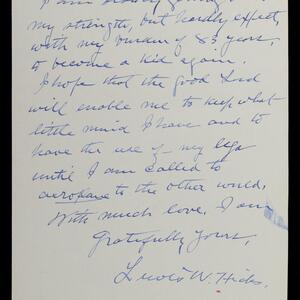 my strength, but hardly expect,
with my burden of 85 years,
to become a kid again.
I hope that the good Lord
will enable me to keep what
little mind I have and to
have the use of my legs
until I am called to
aeroplane to the other world.
With much love, I am
Gratefully Yours,
Lewis W. Hicks.